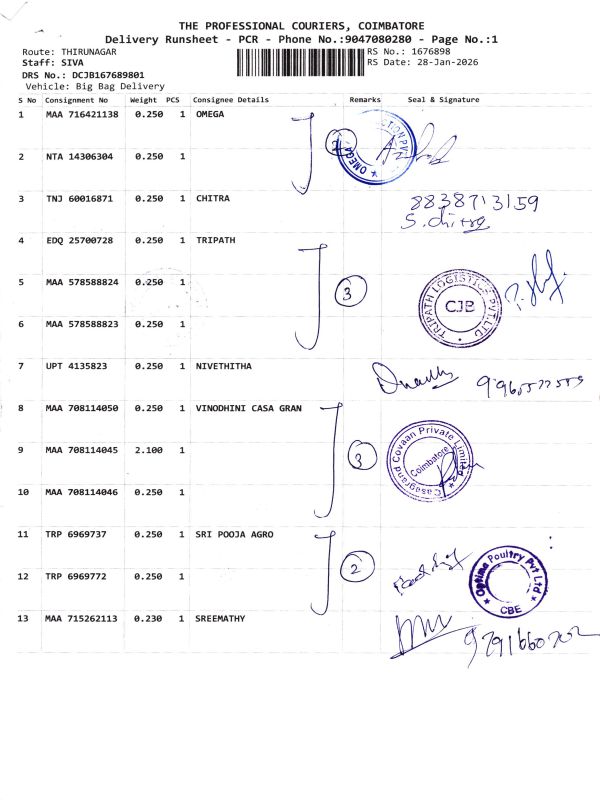 THE PROFESSIONAL COURIERS, COIMBATORE
Delivery Runsheet - PCR - Phone No.:9047080280 - Page No.:1
Route: THIRUNAGAR
RS No.: 1676898
Staff: SIVA
RS Date: 28-Jan-2026
DRS No.: DCJB167689801
Vehicle: Big Bag Delivery
S No Consignment No Weight PCS Consignee Details Remarks Seal & Signature
1 MAA 716421138 0.250 1 OMEGA
2
OMEGA
2 NTA 14306304 0.250 1
3 TNJ 60016871 0.250 1 CHITRA
8838713159
S. chitra
4 EDQ 25700728 0.250 1 TRIPATH
5 MAA 578588824 0.250 1
3
TRIPATH LOGISTICS PVT. LTD
CJB
6 MAA 578588823 0.250 1
7 UPT 4135823 0.250 1 NIVETHITHA
8 MAA 708114050 0.250 1 VINODHINI CASA GRAN
9 MAA 708114045 2.100 1
3
Casagrand Covaan Private Limited
Coimbatore
10 MAA 708114046 0.250 1
11 TRP 6969737 0.250 1 SRI POOJA AGRO
2
Optima Poultry Pvt Ltd
CBE
12 TRP 6969772 0.250 1
13 MAA 715262113 0.230 1 SREEMATHY